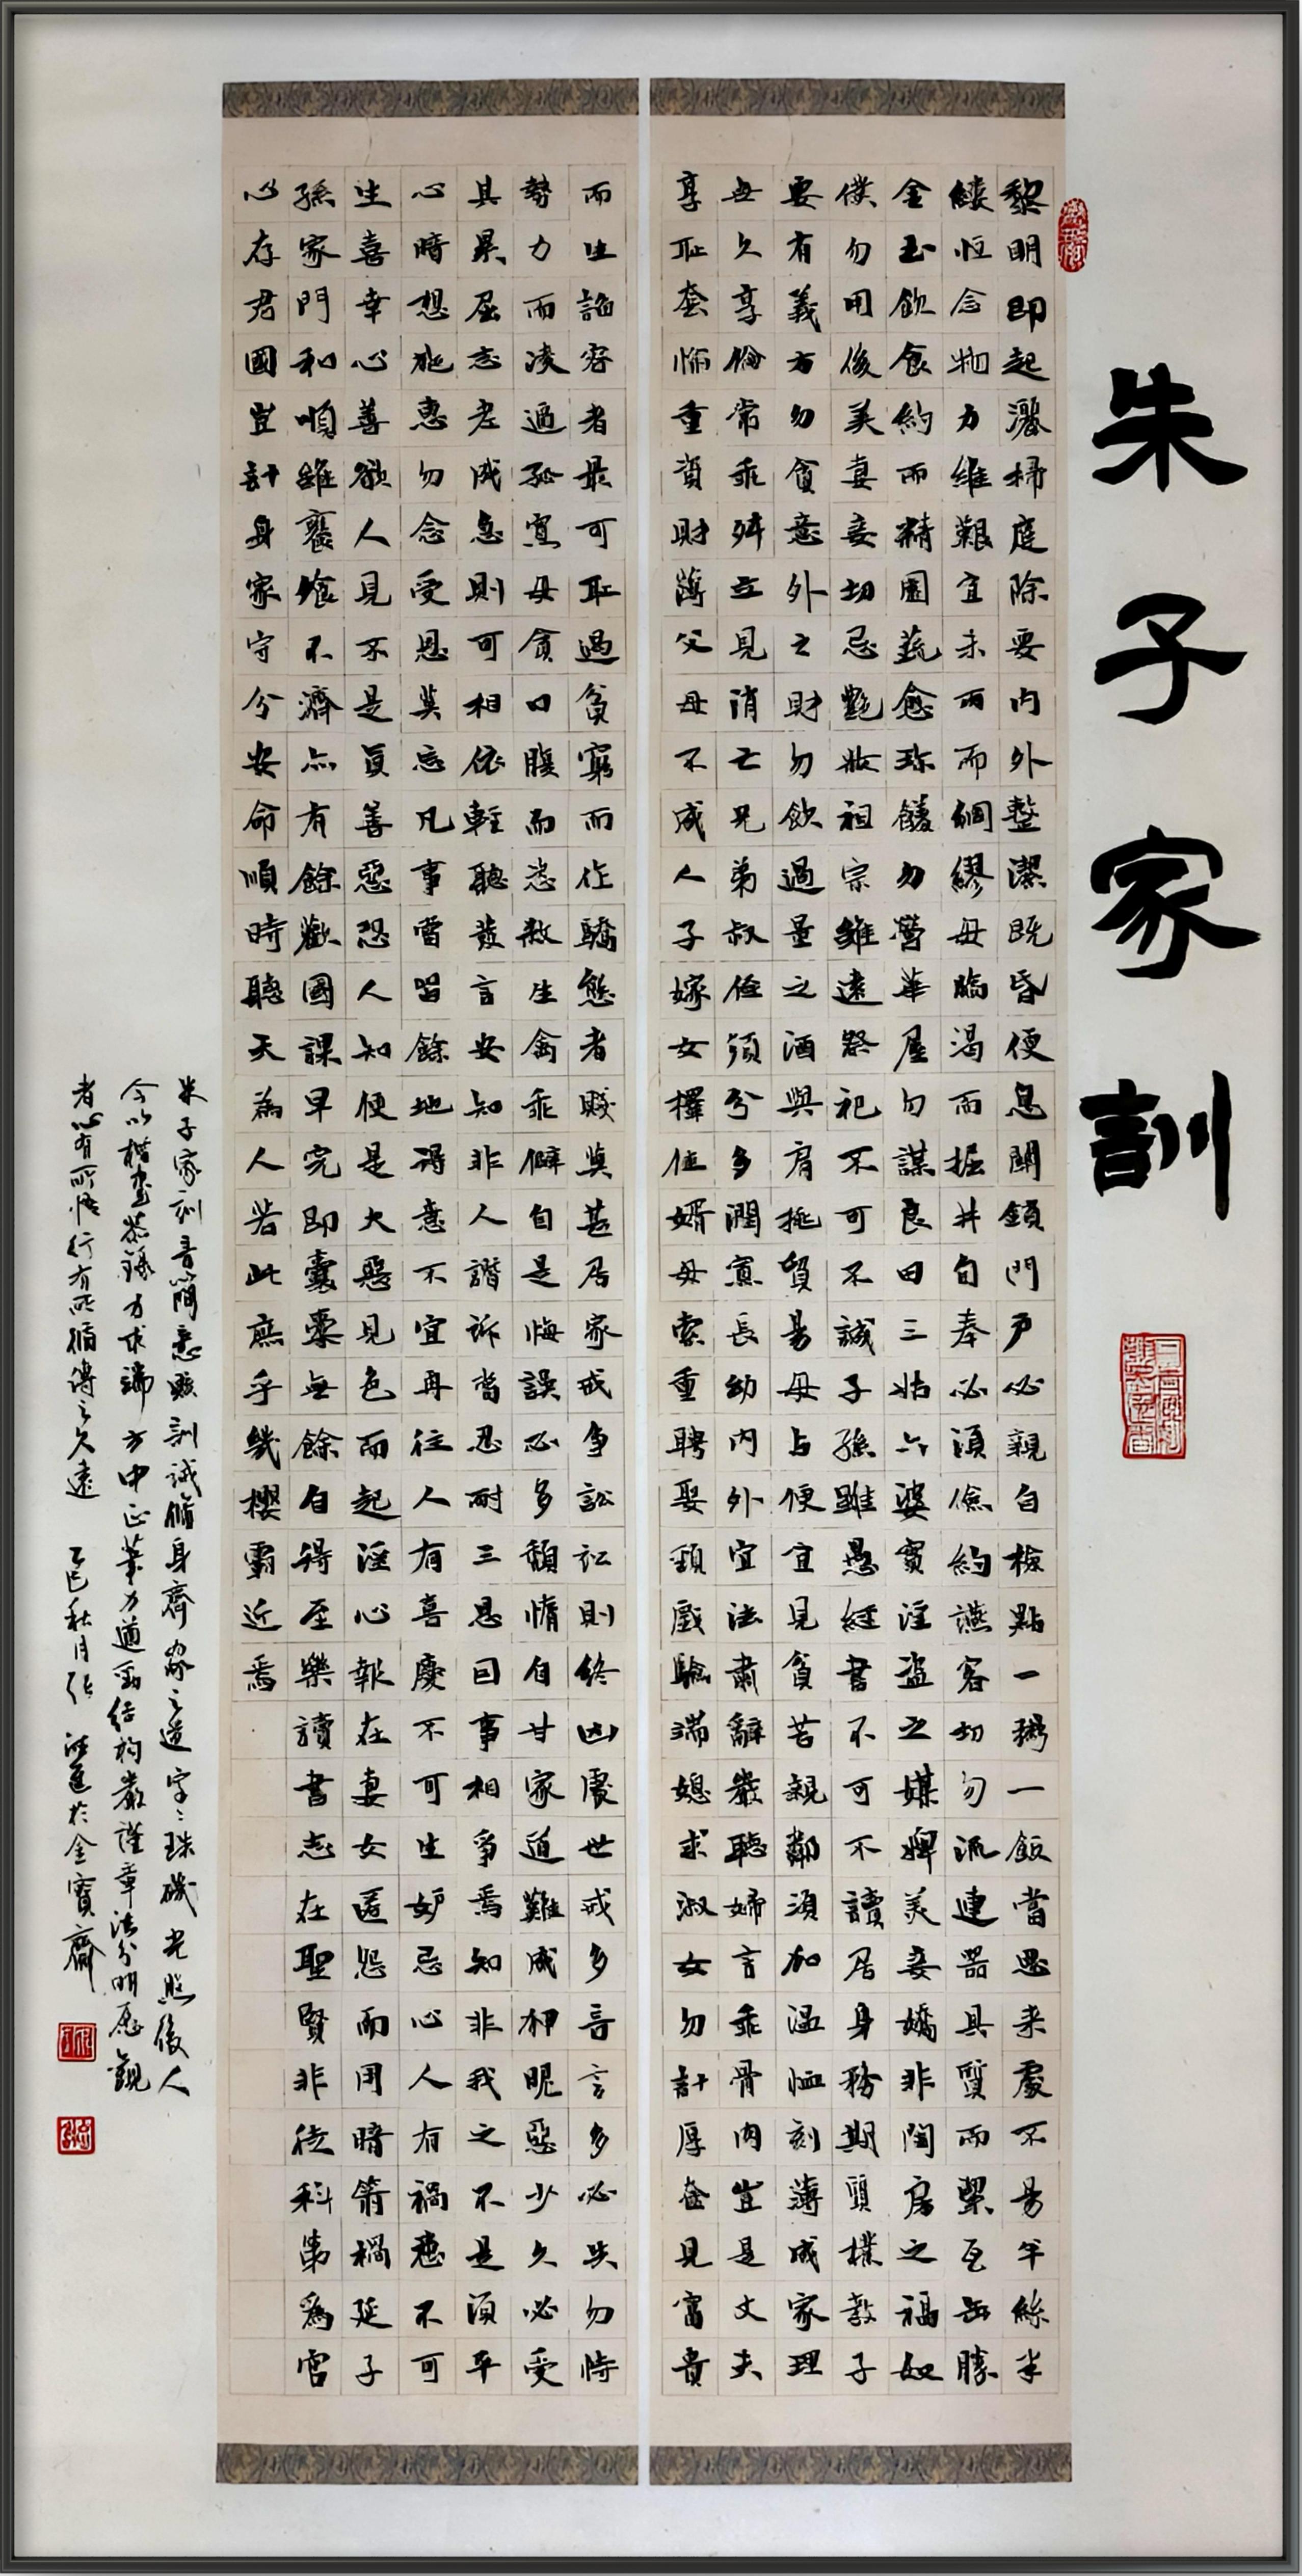 朱子家訓
黎明即起灑掃庭除要內外整潔既昏便息關鎖門戶必親自檢點一粥一飯當思來處不易半絲半
縷恒念物力維艱宜未雨而綢繆毋臨渴而掘井自奉必須儉約讌客切勿流連器具質而潔瓦缶勝
金玉飲食約而精園蔬愈珍饈勿營華屋勿謀良田三姑六婆實淫盜之媒婢美妾嬌非閨房之福奴
僕勿用俊美妻妾切忌艷妝祖宗雖遠祭祀不可不誠子孫雖愚經書不可不讀居身務期質樸教子
要有義方勿貪意外之財勿飲過量之酒與肩挑貿易毋占便宜見貧苦親鄰須加溫恤刻薄成家理
毋久享倫常乖舛立見消亡兄弟叔侄須分多潤寡長幼內外宜法肅辭嚴聽婦言乖骨肉豈是丈夫
享耻套怖重資財薄父母不成人子嫁女擇佳婿毋索重聘娶頭戲驗端媳求淑女勿計厚奩見富貴
而生諂容者最可恥過貧窮而作驕態者賤莫甚居家戒爭訟訟則終凶處世戒多言言多必失勿恃
勢力而凌逼孤寡毋貪口腹而恣殺生禽乖僻自是悔誤必多頹惰自甘家道難成狎昵惡少久必受
其累屈志老成急則可相依輕聽發言安知非人譖訴當忍耐三思因事相爭焉知非我之不是須平
心暗想施惠勿念受恩莫忘凡事當留餘地得意不宜再往人有喜慶不可生妒忌心人有禍患不可
生喜幸心善欲人見不是真善惡恐人知便是大惡見色而起淫心報在妻女匿怨而用暗箭禍延子
孫家門和順雖饔飧不濟亦有餘歡國課早完即囊橐無餘自得至樂讀書志在聖賢非徒科第為官
心存君國豈計身家守分安命順時聽天為人若此庶乎幾櫻霸近焉
朱子家訓言簡意賅訓誡修身齊家之道字字珠璣光照後人
今以楷書恭錄力求端方中正筆力遒勁結構嚴謹章法分明願觀
者心有所悟行有所循傳之久遠 乙巳秋月張 於金寶齋